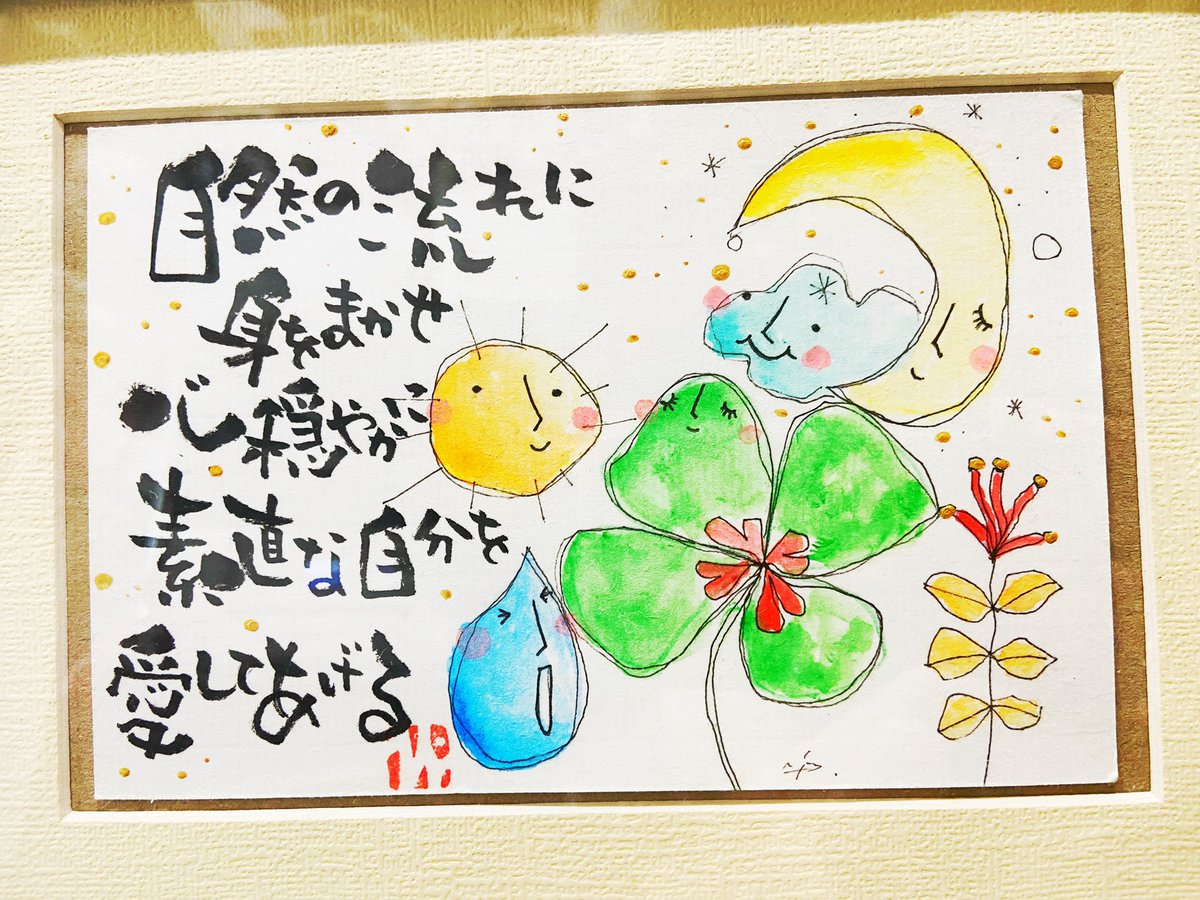 自然の流れに
身をまかせ
心穏やかに
素直な自分を
愛してあげる